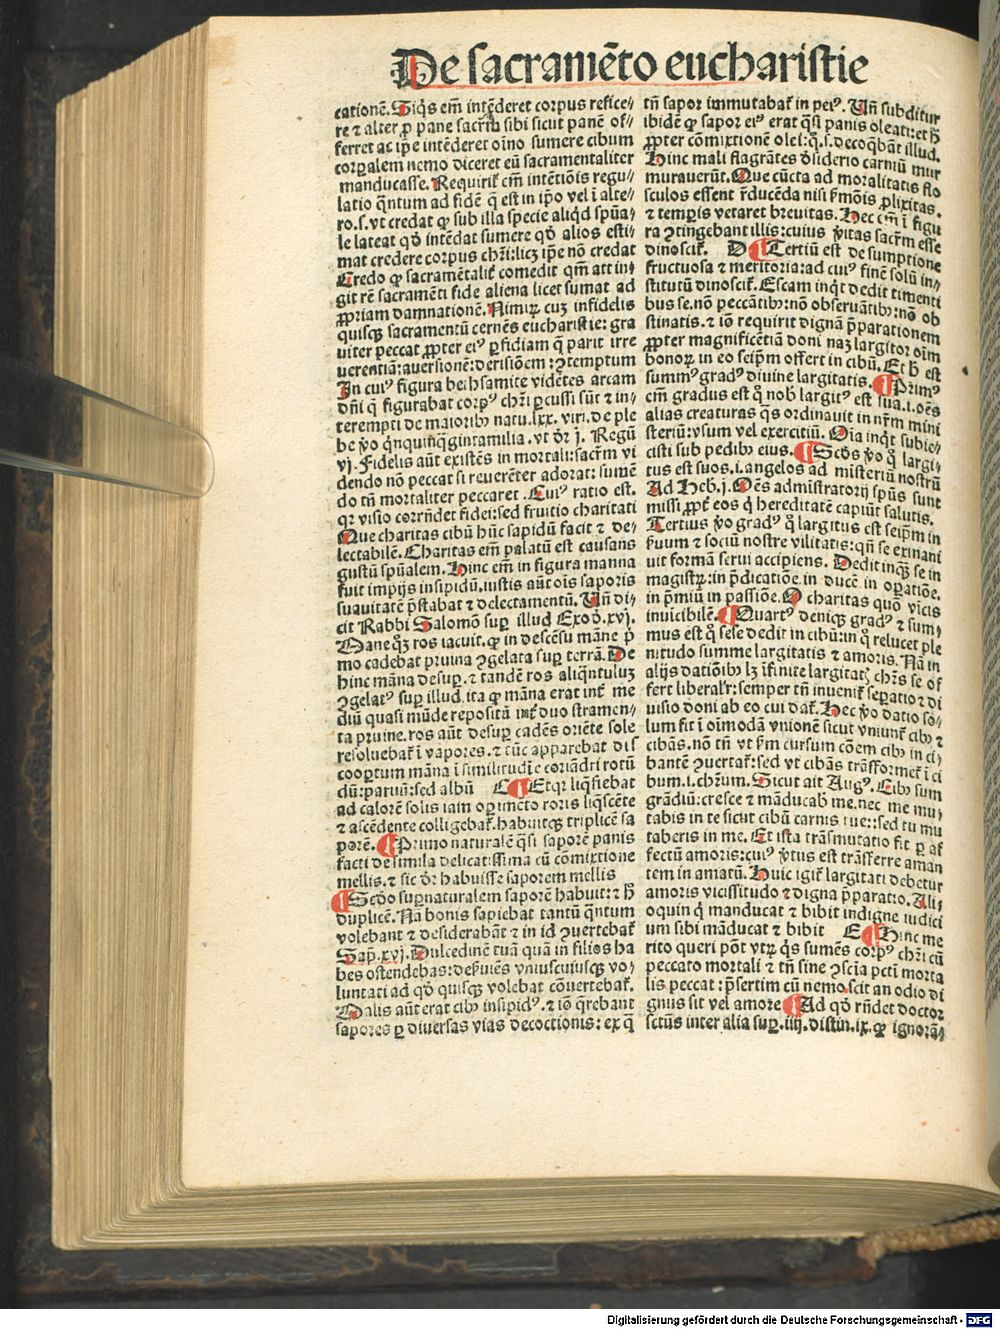 De sacramẽto eucharistie
catione̅. Siq̃s em̅ intẽderet corpus refice⸗
re ⁊ alter ꝓ pane sacr̃m̅ sibi sicut pane̅ of⸗
ferret ac ip̅e inte̅deret oi̅no sumere cibum
corꝑalem nemo diceret eu̅ sacramentaliter
manducasse. Requirit̃ em̅ inte̅tio̅is regu⸗
latio q̃ntum ad fide̅ q̃ est in ip̅o vel i̅ alte⸗
ro.s. vt credat ꝙ sub illa specie aliq̃d sp̅ua⸗
le lateat qd̅ inte̅dat sumere qd̅ alios esti⸗
mat credere corpus chr̃i: licꝫ ip̅e no̅ credat
Credo ꝙ sacrame̅talit̃ comedit qm̅ attin⸗
git re̅ sacrame̅ti fide aliena licet sumat ad
ꝓpriam damnatione̅. Nimiꝝ cuꝫ infidelis
quisqꝫ sacramentu̅ cerne̅s eucharistie: gra
uiter peccat ꝓpter eiꝰ ꝑfidiam q̃ parit irre
uerentia̅: auersione̅: derisio̅em: ꝯtemptum
In cuiꝰ figura bethsamite vide̅tes arcam
dn̅i q̃ figurabat corpꝰ chr̃i ꝑcussi su̅t ⁊ in⸗
terempti de maiorib̃ natu.lxx. viri. de ple
be v̾o q̃nquinq̃gintamilia. vt dr̃ j. Regu̅
vj. Fidelis aut̅ existe̅s in mortali: sacr̃m vi
dendo no̅ peccat si reuere̅ter adorat: sume̅
do tn̅ mortaliter peccaret. Cuiꝰ ratio est.
qꝛ visio corrn̅det fidei: sed fruitio charitati
Que charitas cibu̅ hu̅c sapidu̅ facit ⁊ de⸗
lectabile̅. Charitas em̅ palatu̅ est causans
gustu̅ sp̅ualem. Hinc em̅ in figura manna
fuit impijs insipidu̅, iustis aut̅ o̅is saporis
suauitate̅ p̅stabat ⁊ delectamentu̅. Un̅ di⸗
cit Rabbi Salomo̅ suꝑ illud Exod̅.xvj.
Mane q̃ꝫ ros iacuit. ꝙ in desce̅su ma̅ne p̅
mo cadebat pruina ꝯgelata suꝑ terra̅. De
hinc ma̅na desuꝑ. ⁊ tande̅ ros aliq̃ntuluꝫ
ꝯgelatꝰ suꝑ illud, ita ꝙ ma̅na erat int̃ me
diu̅ quasi mu̅de repositu̅ int̃ duo stramen⸗
ta pruine. ros aut̅ desuꝑ cade̅s orie̅te sole
resoluebat̃ i̅ vapores. ⁊ tu̅c apparebat dis
cooꝑtum ma̅na i̅ similitudi̅e coria̅dri rotu̅
du̅: paruu̅: sed albu̅ C ¶Et qꝛ liq̃fiebat
ad calore̅ solis iam oꝑime̅to roris liq̃sce̅te
⁊ asce̅dente colligebat̃. habuitqꝫ triplice̅ sa
pore̅. ¶Primo naturale̅ q̃si sapore̅ panis
facti de simila delicatissima cu̅ co̅mixtione
mellis. ⁊ sic dr̃ habuisse saporem mellis
¶Scd̅o suꝑnaturalem sapore̅ habuit: ⁊ h̅
duplice̅. Na̅ bonis sapiebat tantu̅ q̃ntum
volebant ⁊ desideraba̅t ⁊ in id ꝯuertebat̃
Sap̅.xvj. Dulcedine̅ tua̅ qua̅ in filios ha
bes ostendebas: deserui̅es vniuscuiusqꝫ vo⸗
luntati ad qd̅ quisqꝫ volebat co̅uertebat̃.
Malis aut̅ erat cib̃ insipidꝰ. ⁊ io̅ q̃rebant
sapores ꝑ diuersas vias decoctionis: ex q̃
tn̅ sapor immutabat̃ in peiꝰ. Un̅ subditur
ibide̅ ꝙ sapor eiꝰ erat q̃si panis oleati: et h̅
ꝓpter co̅mixtione̅ olei: q̃.s. decoq̃ba̅t illud.
Hinc mali flagra̅tes d̾siderio carniu̅ mur
murauer̅t. Que cu̅cta ad moralitatis flo
sculos essent r̅duce̅da nisi s̾mo̅is ꝓlixitas.
⁊ temꝑis vetaret breuitas. Hec em̅ i̅ figu
ra ꝯtingebant illis: cuius v̾itas sacr̃m esse
dinoscit̃. D ¶Tertiu̅ est de sumptione
fructuosa ⁊ meritoria: ad cuiꝰ fine̅ solu̅ in⸗
stitutu̅ dinoscit̃. Escam inq̃t dedit timenti
bus se. no̅ pecca̅tib̃: no̅ obserua̅tib̃: no̅ ob
stinatis. ⁊ io̅ requirit digna̅ p̅parationem
ꝓpter magnifice̅tia̅ doni naꝫ largitor oi̅m
bonoꝝ in eo seip̅m offert in cibu̅. Et h̅ est
summꝰ gradꝰ diuine largitatis. ¶Primꝰ
em̅ gradus est q̃ nob̃ largitꝰ est sua.i. oe̅s
alias creaturas q̃s ordinauit in nr̅m mini
steriu̅: vsum vel exercitiu̅. Oi̅a inq̃t subie⸗
cisti sub pedib̃ eius. ¶Scd̅s v̾o q̃ largi⸗
tus est suos.i. angelos ad misteriu̅ nostru̅
Ad Heb.j. Oe̅s admi̅stratorij sp̅us sunt
missi ꝓpt̃ eos q̃ hereditate̅ capiu̅t salutis.
Tertius v̾o gradꝰ q̃ largitus est seip̅m in
s̾uum ⁊ sociu̅ nostre vilitatis: qn̅ se exinani
uit forma̅ serui accipiens. Dedit inqꝫ se in
magistꝝ: in p̅dicatio̅e. in duce̅ in oꝑatio̅e.
in p̅miu̅ in passio̅e. O charitas quo̅ vi̅cis
inuicibile̅. ¶Quartꝰ deniqꝫ gradꝰ ⁊ sum⸗
mus est q̃ sese dedit in cibu̅: in q̃ relucet ple
nitudo summe largitatis ⁊ amoris. Na̅ in
alijs datio̅ib̃ lꝫ i̅finite largitatꝭ chr̃s se of
fert liberalr̃: semper tn̅ inuenit̃ seꝑatio ⁊ di
uisio doni ab eo cui dat̃. Hec v̾o datio so⸗
lum fit i̅ oi̅moda̅ vnione̅ sicut vniunt̃ cib̃ ⁊
ciba̅s. no̅ tn̅ vt s̾m cursum co̅em cib̃ in ci⸗
bante̅ ꝯuertat̃: sed vt ciba̅s tra̅sformet̃ i̅ ci
bum.i. chr̃um. Sicut ait Augꝰ. Cib̃ sum
gra̅diu̅: cresce ⁊ ma̅ducab̃ me. nec me mu⸗
tabis in te sicut cibu̅ carnis tue: sed tu mu
taberis in me. Et ista tra̅smutatio fit ꝑ af
fectu̅ amoris: cuiꝰ v̾tus est tra̅sferre aman
tem in amatu̅. Huic igit̃ largitati debetur
amoris vicissitudo ⁊ digna p̅paratio. Ali⸗
oquin q̃ manducat ⁊ bibit indigne iudici
um sibi ma̅ducat ⁊ bibit E ¶Hinc me
rito queri po̅t vtꝝ q̃s sume̅s corpꝰ chr̃i cu̅
peccato mortali ⁊ tn̅ sine ꝯscia̅ pcti̅ morta
lis peccat: p̅sertim cu̅ nemo scit an odio di
gnus sit vel amore ¶Ad qd̅ rn̅det doctor
sctu̅s inter alia suꝑ.iiij. distin.ix. ꝙ ignora̅⸗
Digitalisierung gefördert durch die Deutsche Forschungsgemeinschaft - DFG